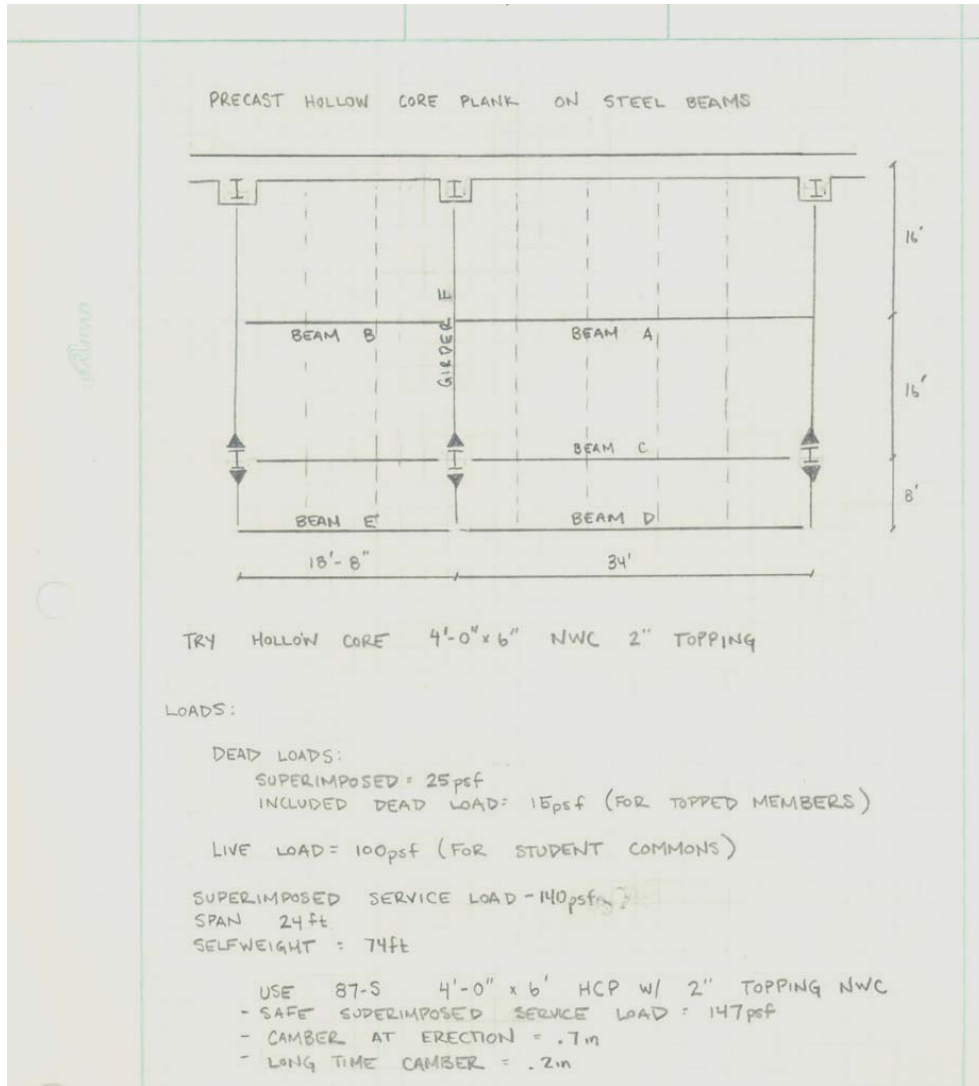 PRECAST HOLLOW CORE PLANK ON STEEL BEAMS
16'
GIRDER F
BEAM B
BEAM A
16'
BEAM C
8'
BEAM E
BEAM D
18'-8"
34'
TRY HOLLOW CORE 4'-0"x6" NWC 2" TOPPING
LOADS:
DEAD LOADS:
SUPERIMPOSED = 25psf
INCLUDED DEAD LOAD = 15psf (FOR TOPPED MEMBERS)
LIVE LOAD = 100psf (FOR STUDENT COMMONS)
SUPERIMPOSED SERVICE LOAD - 140psf
SPAN 24ft
SELFWEIGHT = 74ft
USE 87-S 4'-0" x 6' HCP W/ 2" TOPPING NWC
- SAFE SUPERIMPOSED SERVICE LOAD = 147psf
- CAMBER AT ERECTION = .7in
- LONG TIME CAMBER = .2in